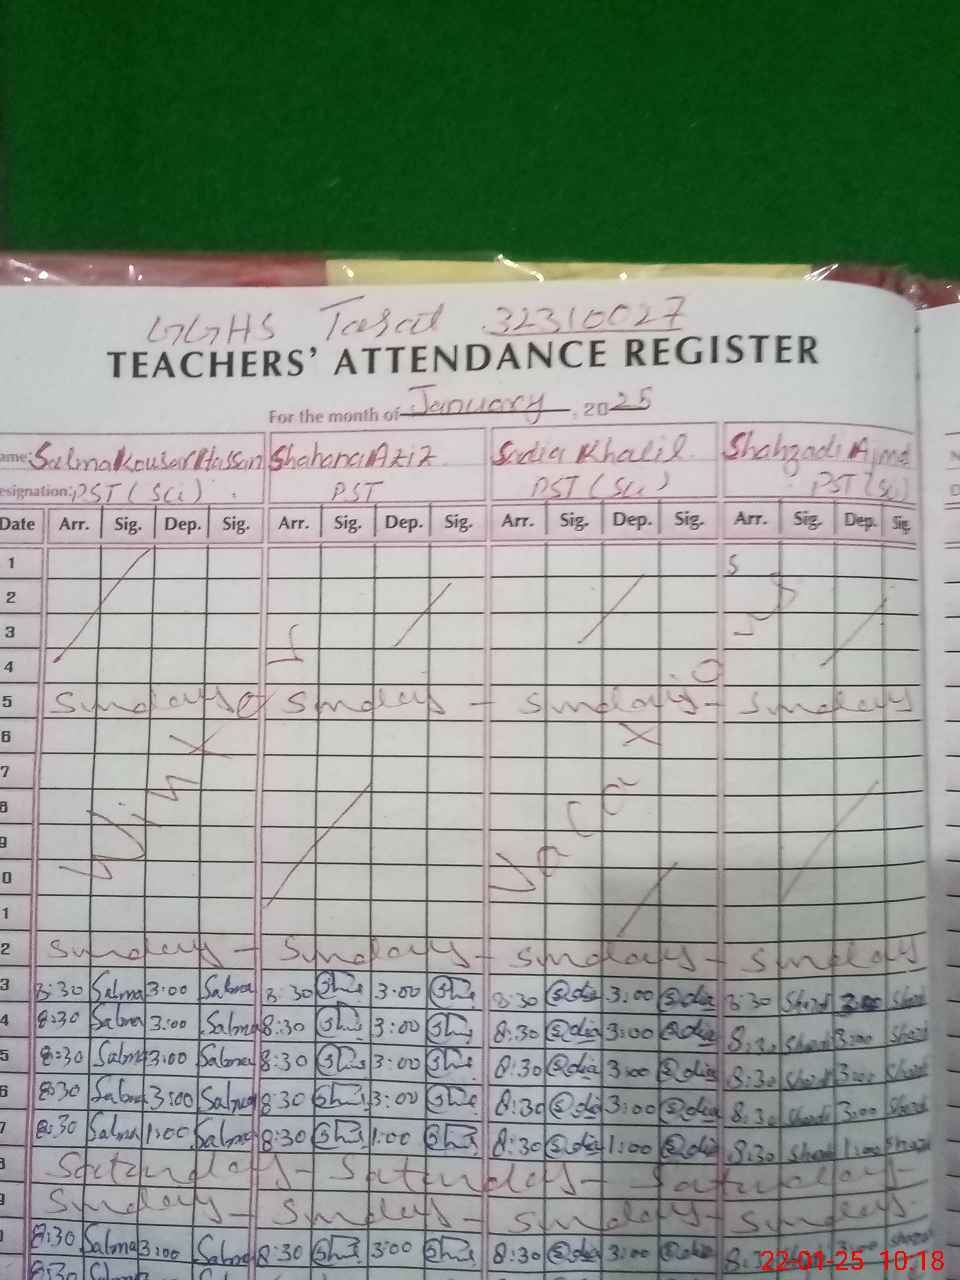 GGHS Tasal 32310027
TEACHERS' ATTENDANCE REGISTER
For the month of January, 2025
ame: Salma Kousar Hassan Shahana Aziz Sadia Khalil Shahzadi Ajmal
esignation: PST (Sci) PST PST (Sci) PST (Sci)
Date Arr. Sig. Dep. Sig. Arr. Sig. Dep. Sig. Arr. Sig. Dep. Sig. Arr. Sig. Dep. Sig.
1
2
3
4
5 Sunday Sunday - Sunday - Sunday
6
7
8
9
0
1
2 Sunday - Sunday - Sunday - Sunday
3 8:30 Salma 3:00 Salma 8:30 3:00 8:30 Sadia 3:00 Sadia 8:30 3:00
4 8:30 Salma 3:00 Salma 8:30 3:00 8:30 Sadia 3:00 Sadia 8:30 3:00
5 8:30 Salma 3:00 Salma 8:30 3:00 8:30 Sadia 3:00 Sadia 8:30 3:00
6 8:30 Salma 3:00 Salma 8:30 3:00 8:30 Sadia 3:00 Sadia 8:30 3:00
7 8:30 Salma 1:00 Salma 8:30 1:00 8:30 Sadia 1:00 Sadia 8:30 1:00
8 Saturday - Saturday - Saturday -
9 Sunday - Sunday - Sunday - Sunday -
8:30 Salma 3:00 Salma 8:30 3:00 8:30 Sadia 3:00 Sadia 8:30 3:00
8:30
22-01-25 10:18